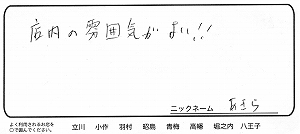 店内の雰囲気がよい!!
ニックネーム あきら
よく利用されるお店を
○で囲んでください。 立川 小作 羽村 昭島 青梅 高幡 堀之内 八王子